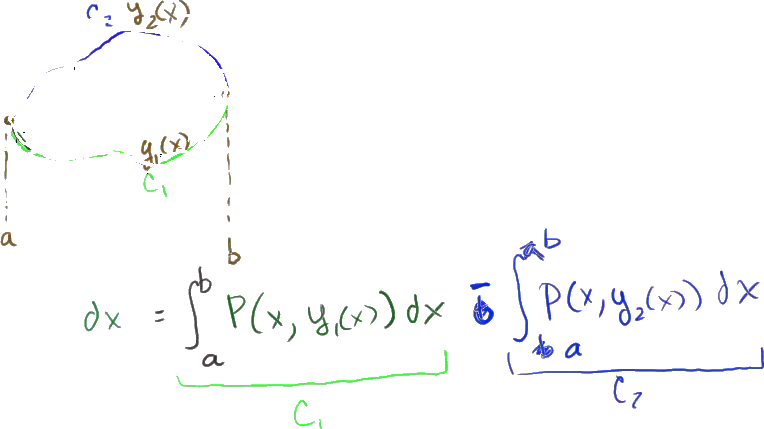 C₂ y₂(x)
y₁(x)
C₁
a
b
dx = ∫ₐᵇ P(x, y₁(x)) dx - ∫ₐᵇ P(x, y₂(x)) dx
C₁ C₂